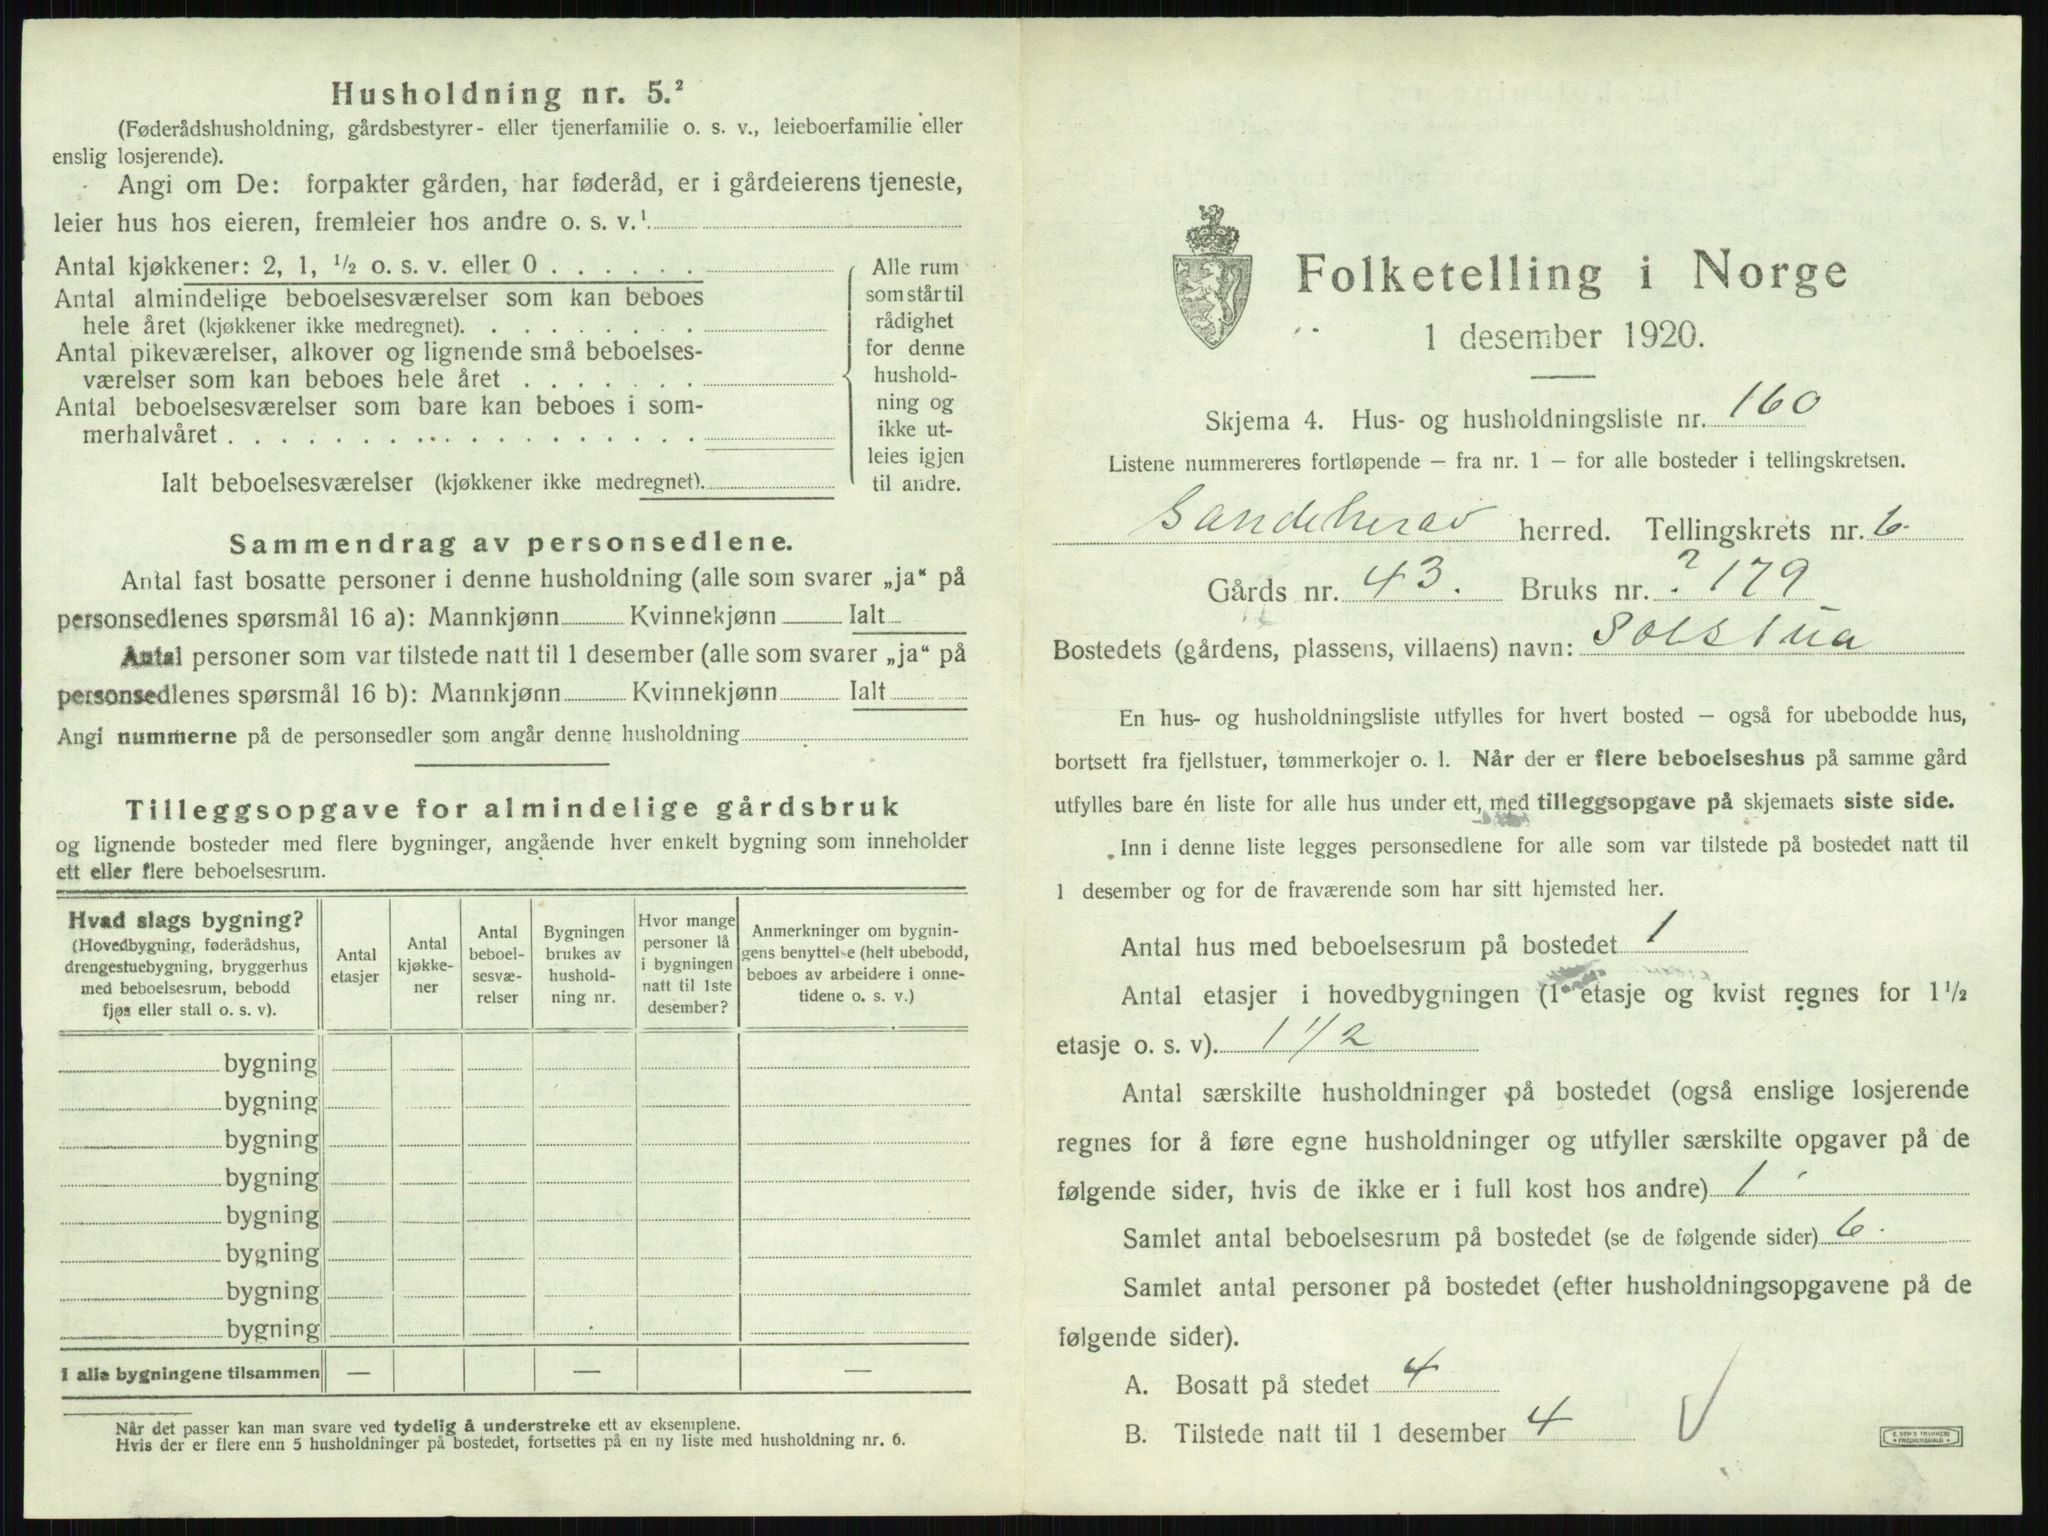 Husholdning nr. 5.²
(Føderådshusholdning, gårdsbestyrer- eller tjenerfamilie o. s. v., leieboerfamilie eller
enslig losjerende).
Angi om De: forpakter gården, har føderåd, er i gårdeierens tjeneste,
leier hus hos eieren, fremleier hos andre o. s. v.¹
Antal kjøkkener: 2, 1, ½ o. s. v. eller 0 . . . . . .
Antal almindelige beboelsesværelser som kan beboes
hele året (kjøkkener ikke medregnet). . . . . . . . .
Antal pikeværelser, alkover og lignende små beboelses-
værelser som kan beboes hele året . . . . . . .
Antal beboelsesværelser som bare kan beboes i som-
merhalvåret . . . . . . . . . . . . . . . . . .
Ialt beboelsesværelser (kjøkkener ikke medregnet).
Alle rum
som står til
rådighet
for denne
hushold-
ning og
ikke ut-
leies igjen
til andre.
Sammendrag av personsedlene.
Antal fast bosatte personer i denne husholdning (alle som svarer „ja“ på
personsedlenes spørsmål 16 a): Mannkjønn Kvinnekjønn Ialt
Antal personer som var tilstede natt til 1 desember (alle som svarer „ja“ på
personsedlenes spørsmål 16 b): Mannkjønn Kvinnekjønn Ialt
Angi nummerne på de personsedler som angår denne husholdning
Tilleggsopgave for almindelige gårdsbruk
og lignende bosteder med flere bygninger, angående hver enkelt bygning som inneholder
ett eller flere beboelsesrum.
Hvad slags bygning?
(Hovedbygning, føderådshus,
drengestuebygning, bryggerhus
med beboelsesrum, bebodd
fjøs eller stall o. s. v).
Antal
etasjer
Antal
kjøkke-
ner
Antal
beboel-
sesvæ-
relser
Bygningen
brukes av
hushold-
ning nr.
Hvor mange
personer lå
i bygningen
natt til 1ste
desember?
Anmerkninger om bygnin-
gens benyttelse (helt ubebodd,
beboes av arbeidere i onne-
tidene o. s. v.)
bygning
bygning
bygning
bygning
bygning
bygning
bygning
bygning
I alle bygningene tilsammen — — —
Når det passer kan man svare ved tydelig å understreke ett av eksemplene.
Hvis der er flere enn 5 husholdninger på bostedet, fortsettes på en ny liste med husholdning nr. 6.
Folketelling i Norge
1 desember 1920.
Skjema 4. Hus- og husholdningsliste nr. 160
Listene nummereres fortløpende – fra nr. 1 – for alle bosteder i tellingskretsen.
Sandeherad herred. Tellingskrets nr. 6.
Gårds nr. 43. Bruks nr. ? 179
Bostedets (gårdens, plassens, villaens) navn: Solstua
En hus- og husholdningsliste utfylles for hvert bosted – også for ubebodde hus,
bortsett fra fjellstuer, tømmerkojer o. l. Når der er flere beboelseshus på samme gård
utfylles bare én liste for alle hus under ett, med tilleggsopgave på skjemaets siste side.
Inn i denne liste legges personsedlene for alle som var tilstede på bostedet natt til
1 desember og for de fraværende som har sitt hjemsted her.
Antal hus med beboelsesrum på bostedet 1
Antal etasjer i hovedbygningen (1 etasje og kvist regnes for 1 ½
etasje o. s. v). 1 1/2
Antal særskilte husholdninger på bostedet (også enslige losjerende
regnes for å føre egne husholdninger og utfyller særskilte opgaver på de
følgende sider, hvis de ikke er i full kost hos andre) 1
Samlet antal beboelsesrum på bostedet (se de følgende sider) 6.
Samlet antal personer på bostedet (efter husholdningsopgavene på de
følgende sider).
A. Bosatt på stedet 4
B. Tilstede natt til 1 desember 4